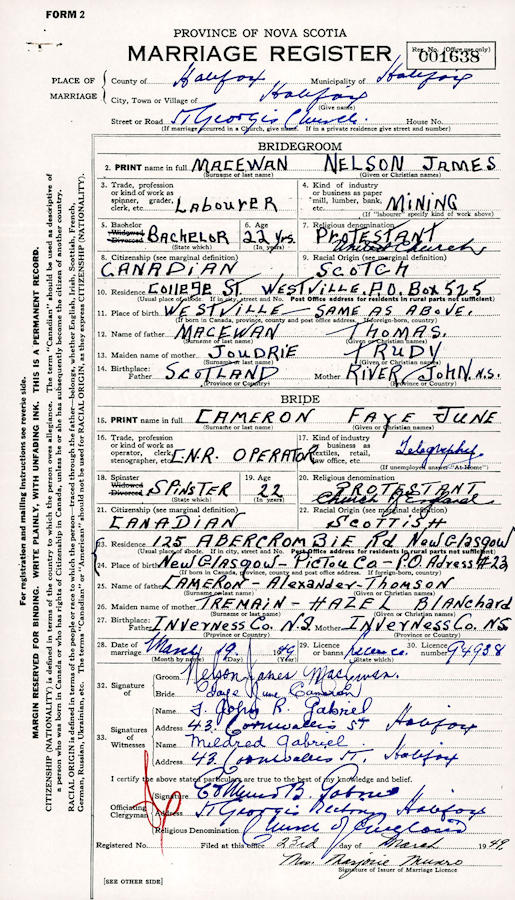 FORM 2
PROVINCE OF NOVA SCOTIA
MARRIAGE REGISTER
Reg. No. (Office use only)
001638
PLACE OF MARRIAGE
County of Halifax Municipality of Halifax
City, Town or Village of Halifax
(Give name)
Street or Road St Georges Church House No.
(If marriage occurred in a Church, give name. If in a private residence give street and number)
BRIDEGROOM
2. PRINT name in full MACEWAN NELSON JAMES
(Surname or last name) (Given or Christian names)
3. Trade, profession or kind of work as spinner, grader, clerk, etc. LABOURER
4. Kind of industry or business as paper mill, lumber, bank, etc. MINING
(If "labourer" specify kind of work above)
5. Bachelor Widowed Divorced BACHELOR (State which)
6. Age 22 Yrs. (In years)
7. Religious denomination PROTESTANT United Church
8. Citizenship (see marginal definition) CANADIAN
9. Racial Origin (see marginal definition) SCOTCH
10. Residence COLLEGE ST. WESTVILLE. P.O. BOX 525
(Usual place of abode. If in city, street and No. Post Office address for residents in rural parts not sufficient)
11. Place of birth WESTVILLE - SAME AS ABOVE.
(If born in Canada, province, county and post office address. If foreign-born, country)
12. Name of father MACEWAN THOMAS.
(Surname or last name) (Given or Christian names)
13. Maiden name of mother JOUDRIE TRUDY
(Surname or last name) (Given or Christian names)
14. Birthplace: Father SCOTLAND Mother RIVER JOHN. N.S.
(Province or Country) (Province or Country)
BRIDE
15. PRINT name in full CAMERON FAYE JUNE
(Surname or last name) (Given or Christian names)
16. Trade, profession or kind of work as operator, clerk, stenographer, etc. C.N.R. OPERATOR
17. Kind of industry or business as textiles, retail, law office, etc. Telegraphy
(If unemployed answer "At Home")
18. Spinster Widowed Divorced SPINSTER (State which)
19. Age 22 (In years)
20. Religious denomination PROTESTANT Church of England
21. Citizenship (see marginal definition) CANADIAN
22. Racial Origin (see marginal definition) SCOTTISH
23. Residence 125 ABERCROMBIE Rd New Glasgow
(Usual place of abode. If in city, street and No. Post Office address for residents in rural parts not sufficient)
24. Place of birth New Glasgow - Pictou Co - P.O. Adress #23
(If born in Canada, province, county and post office address. If foreign-born, country)
25. Name of father CAMERON - Alexander - Thomson
(Surname or last name) (Given or Christian names)
26. Maiden name of mother TREMAIN - HAZEL Blanchard
(Surname or last name) (Given or Christian names)
27. Birthplace: Father INVERNESS Co. N.S Mother INVERNESS Co. NS
(Province or Country) (Province or Country)
28. Date of marriage March 19. 1949
(Month by name) (Day) (Year)
29. Licence or banns licence. (State which)
30. Licence No. 94938
32. Signature of
Groom Nelson James MacEwan.
Bride Faye June Cameron
33. Signatures of Witnesses
Name J. John R. Gabriel
Address 43. Cornwallis St Halifax
Name Mildred Gabriel
Address 43. Cornwallis St. Halifax
I certify the above stated particulars are true to the best of my knowledge and belief.
Officiating Clergyman
Signature B.
Address St Georges Rectory Halifax
Religious Denomination Church of England
Registered No. Filed at this office 23rd day of March 1949
Mrs. Marjorie Munro
Signature of Issuer of Marriage Licence
[SEE OTHER SIDE]
For registration and mailing instructions see reverse side.
MARGIN RESERVED FOR BINDING. WRITE PLAINLY, WITH UNFADING INK. THIS IS A PERMANENT RECORD.
CITIZENSHIP (NATIONALITY) is defined in terms of the country to which the person owes allegiance. The term "Canadian" should be used as descriptive of
a person who was born in Canada or who has rights of Citizenship in Canada, unless he or she has subsequently become the citizen of another country.
RACIAL ORIGIN is defined in terms of the people or race to which the person—traced through the father—belongs, whether English, Irish, Scottish, French,
German, Russian, Ukrainian, etc. The terms "Canadian" or "American" should not be used for RACIAL ORIGIN, as they express CITIZENSHIP (NATIONALITY).